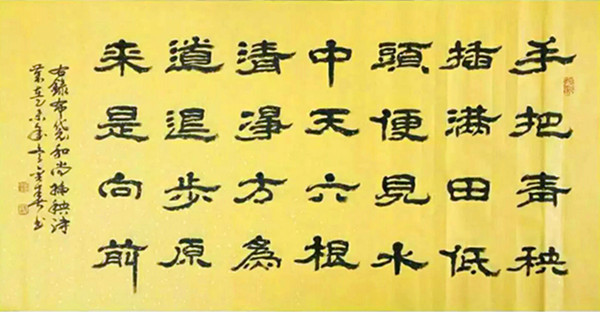 手把青秧
插滿田低
頭便見水
中天六根
清淨方為
道退步原
来是向前
右錄布袋和尚插秧詩
書